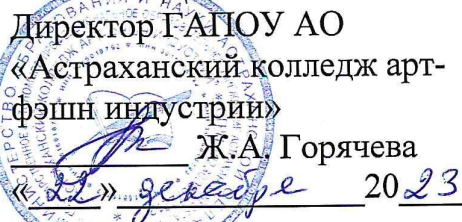 Директор ГАПОУ АО
«Астраханский колледж арт-
фэшн индустрии»
Ж.А. Горячева
«22» декабря 2023